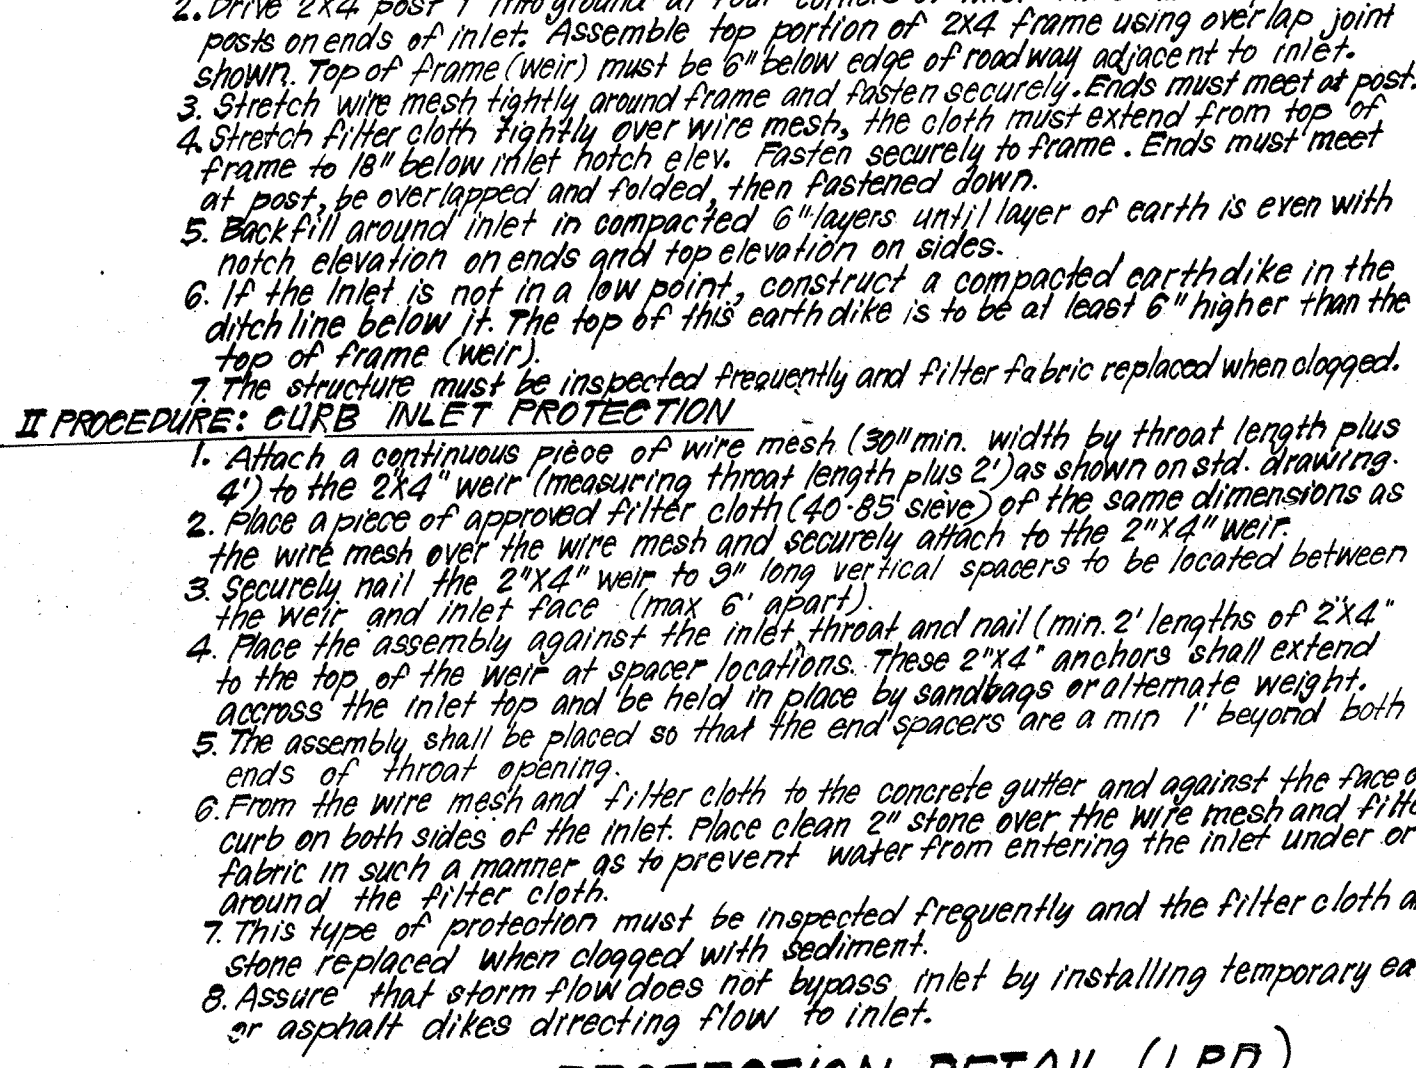 2. Drive 2X4 post 1' into ground at four corners of inlet.
posts on ends of inlet. Assemble top portion of 2X4 frame using overlap joint
shown. Top of frame (weir) must be 6" below edge of roadway adjacent to inlet.
3. Stretch wire mesh tightly around frame and fasten securely. Ends must meet at post.
4. Stretch filter cloth tightly over wire mesh, the cloth must extend from top of
frame to 18" below inlet notch elev. Fasten securely to frame. Ends must meet
at post, be overlapped and folded, then fastened down.
5. Backfill around inlet in compacted 6" layers until layer of earth is even with
notch elevation on ends and top elevation on sides.
6. If the inlet is not in a low point, construct a compacted earth dike in the
ditch line below it. The top of this earth dike is to be at least 6" higher than the
top of frame (weir).
7. The structure must be inspected frequently and filter fabric replaced when clogged.
II PROCEDURE: CURB INLET PROTECTION
1. Attach a continuous piece of wire mesh (30" min. width by throat length plus
4') to the 2"X4" weir (measuring throat length plus 2') as shown on std. drawing.
2. Place a piece of approved filter cloth (40-85 sieve) of the same dimensions as
the wire mesh over the wire mesh and securely attach to the 2"X4" weir.
3. Securely nail the 2"X4" weir to 9" long vertical spacers to be located between
the weir and inlet face (max 6' apart).
4. Place the assembly against the inlet throat and nail (min. 2' lengths of 2"X4"
to the top of the weir at spacer locations. These 2"X4" anchors shall extend
accross the inlet top and be held in place by sandbags or alternate weight.
5. The assembly shall be placed so that the end spacers are a min 1' beyond both
ends of throat opening.
6. From the wire mesh and filter cloth to the concrete gutter and against the face o
curb on both sides of the inlet. Place clean 2" stone over the wire mesh and filte
fabric in such a manner as to prevent water from entering the inlet under or
around the filter cloth.
7. This type of protection must be inspected frequently and the filter cloth a
stone replaced when clogged with sediment.
8. Assure that storm flow does not bypass inlet by installing temporary ea
or asphalt dikes directing flow to inlet.
PROTECTION DETAIL (I.P.D.)